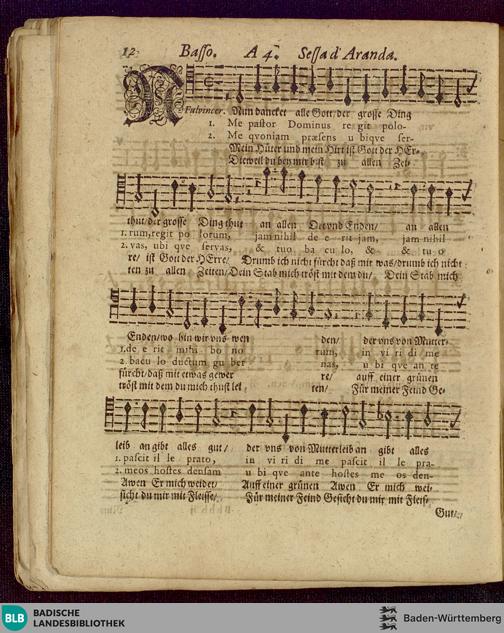 12. Basso. A 4. Sessa d' Aranda.
Pulvincer. Nun dancket alle Gott/ der grosse Ding
1. Me pastor Dominus regit polo-
2. Me qvoniam præsens ubiqve ser-
Mein Hüter und mein Hirt ist Gott der HEr-
Dieweil du bey mir bist zu allen Zei-
thut/ der grosse Ding thut an allen Ort und Enden/ an allen
1. rum, regit po lorum, jam nihil de e rit jam, jam nihil
2. vas, ubi qve servas, & tuo ba cu lo, & & tu o
re/ ist Gott der HErre/ Drumb ich nicht fürcht daß mir was/ drumb ich nicht
ten zu allen Zeiten/ Dein Stab mich tröst mit dem du/ Dein Stab mich
Enden/ wo hin wir uns wen den/ der uns von Mutter-
1. de e rit mihi bo no rum, in vi ri di/ me
2. bacu lo ductum gu ber nas, u bi qve an te
fürcht/ daß mir etwas gewer re/ auff einer grünen
tröst mit dem du mich thust lei, ten/ Für meiner Feind Ge-
leib an gibt alles gut/ der uns von Mutterleib an gibt alles
1. pascit il le prato, in vi ri di me pascit il le pra-
2. meos hostes densam u bi qve ante hostes me os den-
Awen Er mich weidet/ Auff einer grünen Awen Er mich wei-
sicht du mir mit Fleisse/ Für meiner Feind Gesicht du mir mit Fleis-
Gut/
BLB BADISCHE
LANDESBIBLIOTHEK
Baden-Württemberg